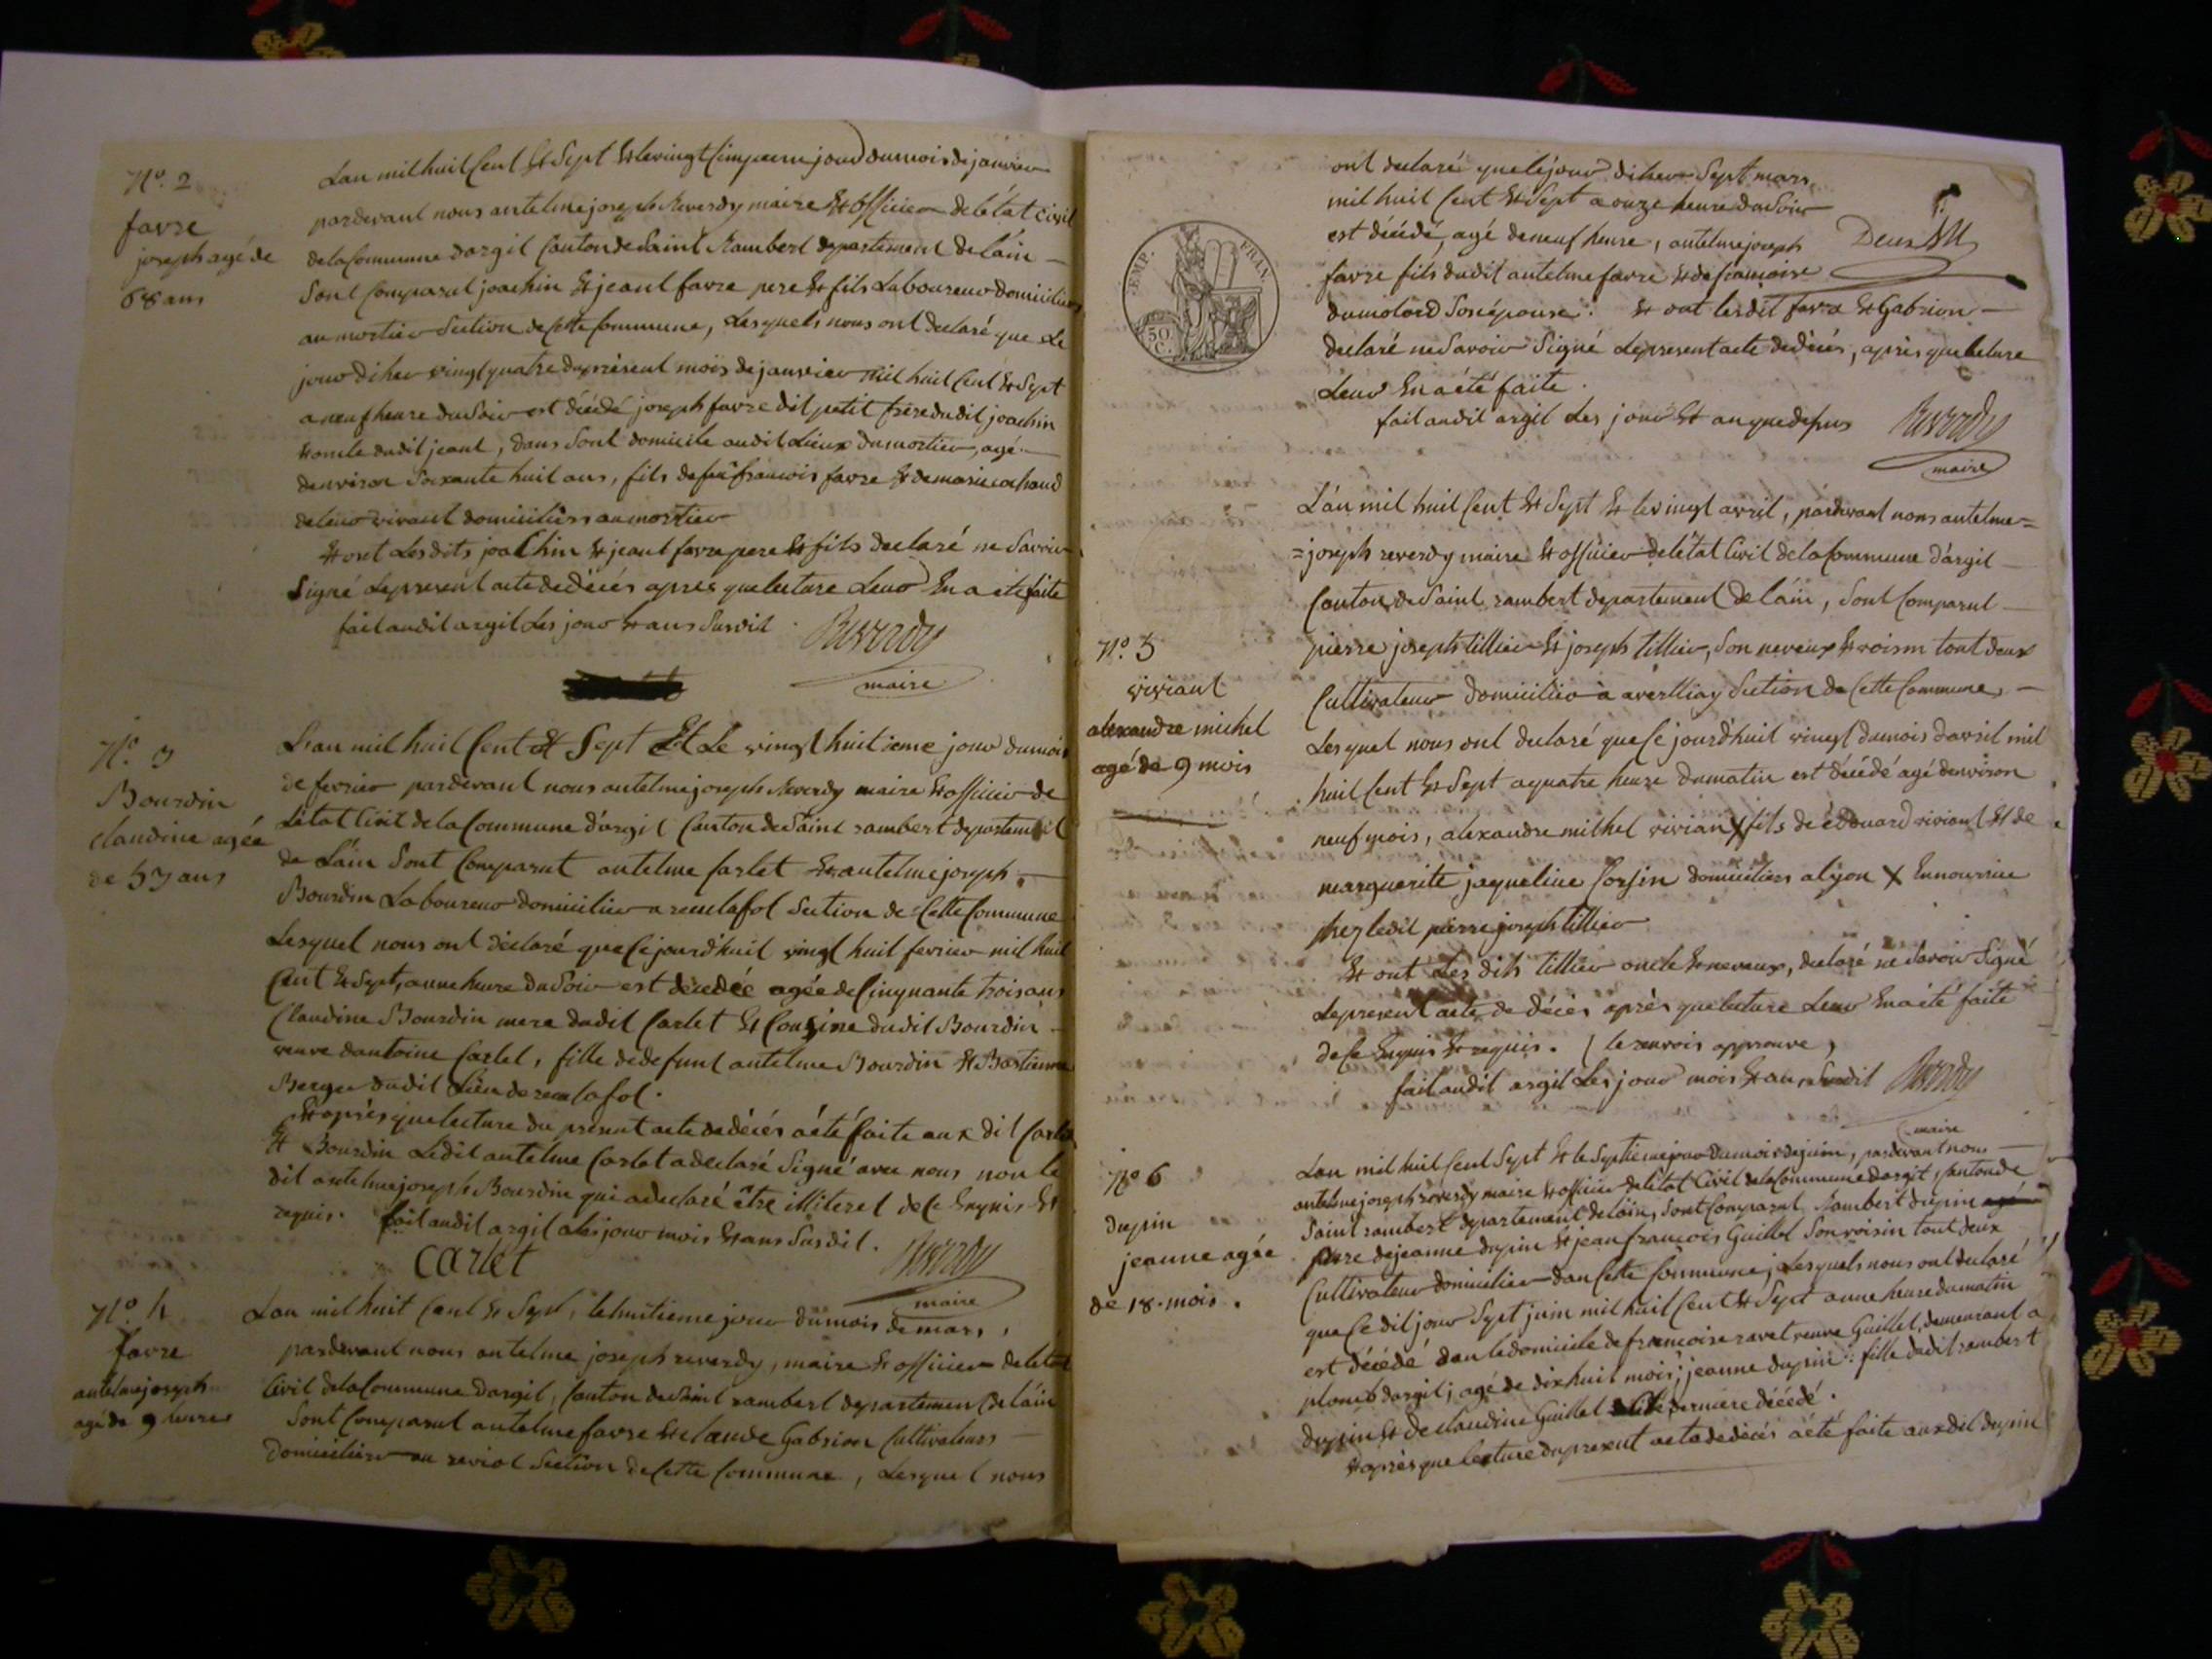 N.o 2
favre
joseph agé de
68 ans
Lan mil huit Cent Et Sept Et le vingt Cinquieme jour du mois de janvier
pardevant nous antelme joseph Reverdy maire Et officier de létat civil
de la Commune dargil Canton de Saint Rambert departement de láin —
Sont Comparut joachin Et jeant favre pere Et fils Laboureur domiciliers
au mortier Section de Cette Commune, Lesquels nous ont declaré que Le
jour diher vingt quatre du présent mois de janvier mil huit Cent Et Sept
a neuf heure du Soir est décédé joseph favre dit petit frere dudit joachin
Et oncle dudit jeant, dans Sont domicile audit Lieux du mortier, agé
denviron Soixante huit ans, fils de feu francois favre Et de marie cohaud
de leur vivant domiciliers au mortier
Et ont Lesdits joachin Et jeant favre pere Et fils declaré ne Savoir
Signé Le present acte de décés aprés que lecture Leur En a été faite
fait audit argil Les jour Et ans Susdit
Reverdy
maire
N.o 3
Bourdin
claudine agée
de 53 ans
L'an mil huit Cent Et Sept Et Le vingt huitieme jour du mois
de fevrier pardevant nous antelme joseph Reverdy maire Et officier de
Létat Civil de la Commune d'argil Canton de Saint rambert departement
de Láin Sont Comparut antelme Carlet Et antelme joseph
Bourdin Laboureur domicilier a reculafol Section de Cette Commune
Lesquel nous ont déclaré que Ce jourdhuit vingt huit fevrier mil huit
Cent Et Sept, a une heure du Soir est décédée agée de Cinquante trois ans
Claudine Bourdin mere dudit Carlet Et Cousine dudit Bourdin
veuve dantoine Carlet, fille de defunt antelme Bourdin Et Bastienne
Berger dudit Lieu de reculafol.
Et après que lecture du présent acte de décés a été faite aux dit Carlet
Et Bourdin Ledit antelme Carlet a declaré Signé avec nous non le
dit antelme joseph Bourdin qui a declaré être illiteret de Ce Enquis Et
requis. fait audit argil Les jour mois Et ans Susdit.
Carlet
Reverdy
maire
N.o 4
favre
antelme joseph
agé de 9 heures
Lan mil huit Cent Et Sept, le huitieme jour du mois de mars,
pardevant nous antelme joseph reverdy, maire Et officier de létat
Civil de la Commune dargil, Canton de Saint rambert departement de láin
Sont Comparut antelme favre Et claude Gabrion Cultivateurs —
domiciliers au reviol Section de Cette Commune, Lesquel nous
TEMP. FRAN.
50 C.
ont declaré que le jour dihier Sept mars
mil huit Cent Et Sept a onze heure du Soir
est décédé, agé de neuf heure, antelme joseph
favre fils dudit antelme favre Et de francoise
dumolard Son épouse. Et ont lesdit favre Et Gabrion —
declaré ne Savoir Signé Le present acte de décés, après que lecture
Leur En a été faite.
fait audit argil Les jour Et an que depus
Reverdy
maire
N.o 5
viviant
alexandre michel
agé de 9 mois
L'an mil huit Cent Et Sept Et le vingt avril, pardevant nous antelme=
=joseph reverdy maire Et officier de létat Civil de la Commune dárgil —
Canton de Saint rambert departement de láin, Sont Comparut —
pierre joseph tillier Et joseph tillier, Son neveux Et voisin tout deux
Cultivateur domicilier à averlliay Section de Cette Commune, —
Lesquel nous ont declaré que Ce jourdhuit vingt du mois davril mil
huit Cent Et Sept a quatre heure du matin est décédé agé denviron
neuf mois, alexandre michel viviant fils de édouard viviant Et de
marguerite jaqueline Corsin domiciliers a lyon X En nourrice
chez ledit pierre joseph tillier
Et ont Les dits tillier oncle Et neveux, declaré ne Savoir Signé
Le present acte de décés après que lecture Leur En a été faite
de Ce Enquis Et requis. (le renvois approuve)
fait audit argil Les jour mois Et an Susdit
Reverdy
maire
No 6
dupin
jeanne agée
de 18. mois.
Lan mil huit Cent Sept Et le Septieme jour du mois de juin, pardevant nous —
antelme joseph reverdy maire Et officier de létat Civil de la Commune dargil, Canton de
Saint rambert departement de láin, Sont Comparut Rambert dupin
pere de jeanne dupin Et jean francois Guillet Son voisin tout deux
Cultivateur domicilier dan Cette Commune, Lesquels nous ont declaré
que Ce dit jour Sept juin mil huit Cent Et Sept a une heure du matin
est décédé dan le domicile de francoise ravet veuve Guillet, demeurant a
dargil; agé de dix huit mois; jeanne dupin: fille dudit rambert
dupin Et de claudine Guillet derniere décédé.
Et après que lecture du present acte de décés a été faite aux dit dupin